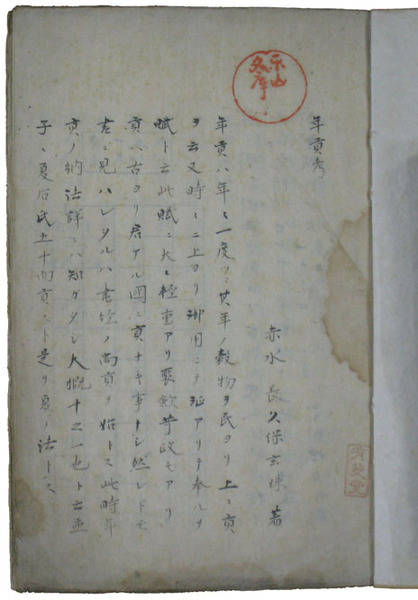 年貢考
赤水 長久保玄珠 著
年貢ハ年々一度ツヽ其年ノ穀物ヲ民ヨリ上ニ貢
ヲ云又時々ニ上ヨリ御用ニテ アリテ奉ルヲ
賦ト云此賦ニ大ニ軽重アリ聚斂苛政モアリ
貢ハ古ヨリ君アル国ニ貢ナキ事ナシ然レドモ
書ニ見ハレタルハ書経ノ禹貢ヲ始トス此時年
貢ノ納法詳ニハ知ガタシ大概十之一也ト云孟
子ニ夏后氏五十而貢スト是ヲ夏ノ法トス